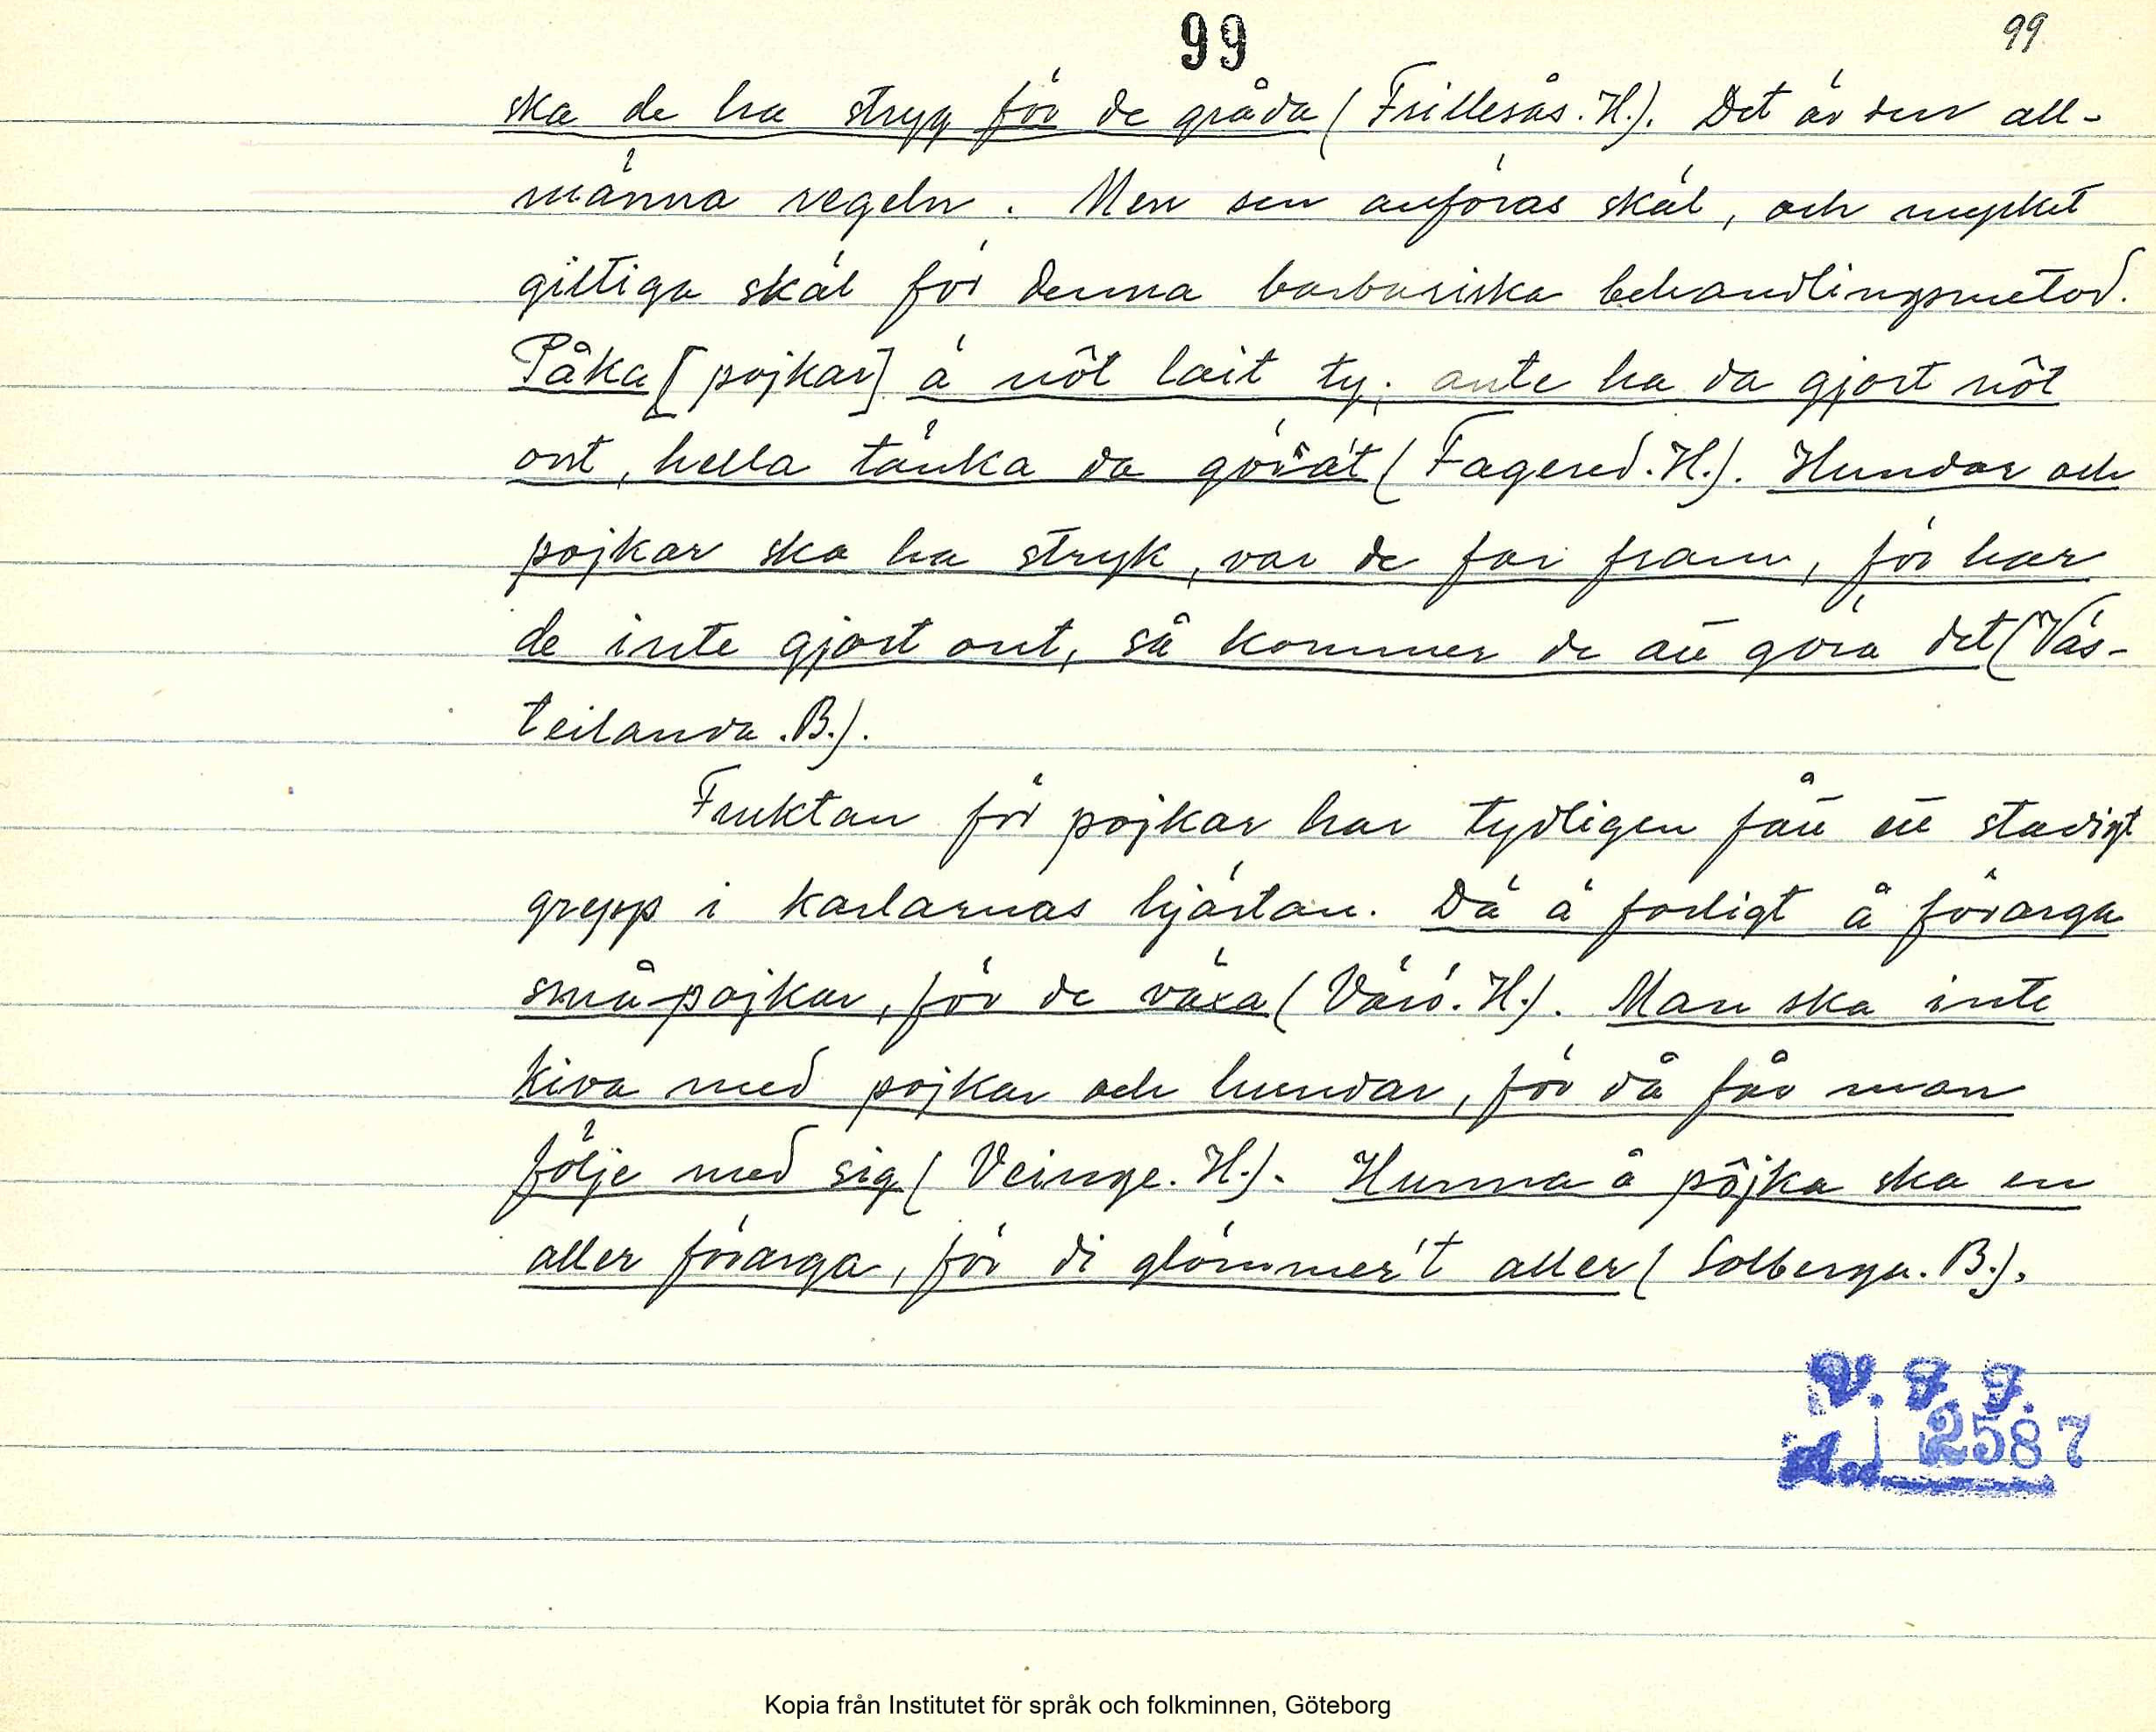 99
99
ska de ha stryg för de gråda (Frillesås. H.). Det är den all-
männa regeln. Men sen anföras skäl, och mycket
giltiga skäl för denna barbariska behandlingsmetod.
Påka [pojkar] ä nôt lait ty; ante ha da gjort nôt
ont, hella tänka da göra't (Fagered. H.). Hundar och
pojkar ska ha stryk, var de far fram, för har
de inte gjort ont, så kommer de att göra det (Väs-
terlanda. B.).
Fruktan för pojkar har tydligen fått ett stadigt
grepp i karlarnas hjärtan. Dä ä farligt å förarga
småpojkar, för de växa (Värö. H.). Man ska inte
kiva med pojkar och hundar, för då får man
följe med sig (Veinge. H.). Hunna å pôjka ska en
aller förarga, för di glömmer't aller (Solberga. B.).
V. F. F.
2587
Kopia från Institutet för språk och folkminnen, Göteborg